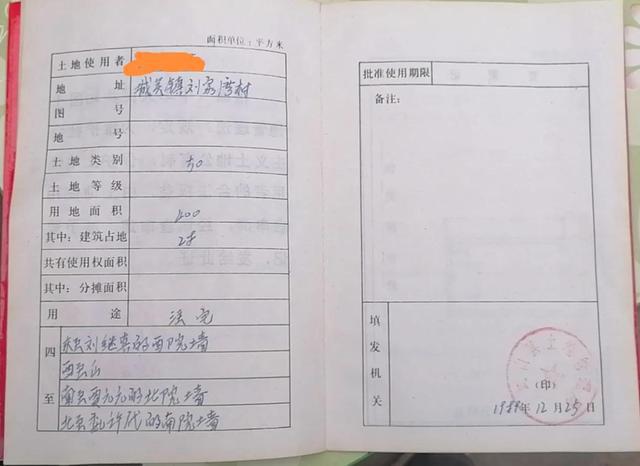 面积单位：平方米
土地使用者
地址 城关镇刘家湾村
图号
地号
土地类别 50
土地等级
用地面积 200
其中：建筑占地
共有使用权面积
其中：分摊面积
用途 住宅
四至
东至刘继真的西院墙
西至山
南至贾元九的北院墙
北至 许代的南院墙
批准使用期限
备注：
填发机关
（印）
1989年12月25日